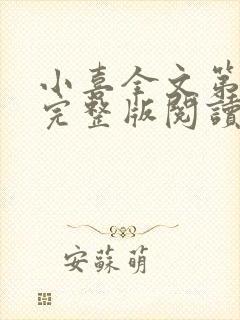 小喜全文第
完整版閱讀
安蘇萌